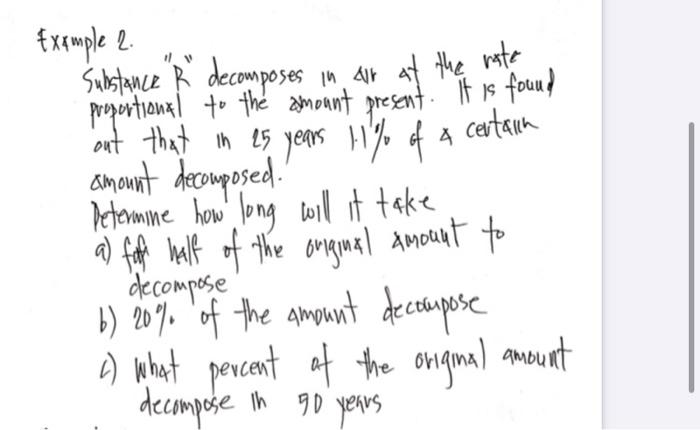 Example 2.
Substance "R" decomposes in air at the rate
proportional to the amount present. It is found
out that in 25 years 1.1% of a certain
amount decomposed.
Determine how long will it take
a) for half of the original amount to
decompose
b) 20% of the amount decompose
c) what percent of the original amount
decompose in 50 years